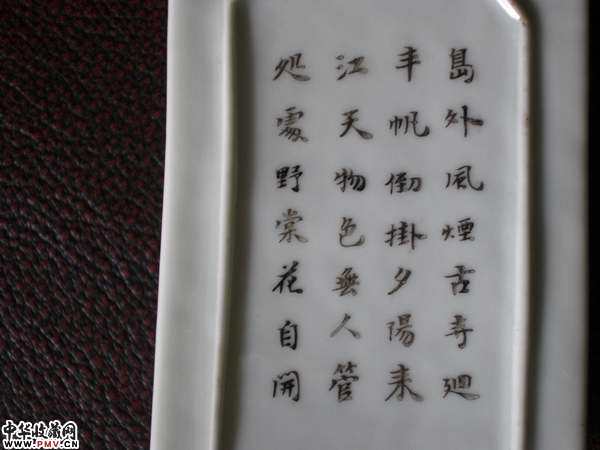 島外風煙古寺迴
丰帆倒掛夕陽来
江天物色無人管
処處野棠花自開
中华收藏网
WWW.PMV.CN